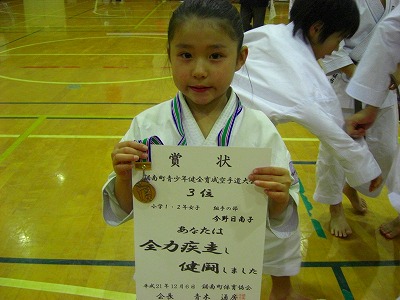 賞状
鋸南町青少年健全育成空手道大会
3位
小学1・2年女子 組手の部
今野日南子
あなたは
全力疾走し
健闘しました
平成21年12月6日 鋸南町体育協会
会長 青木